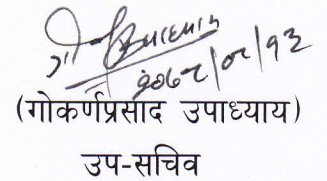 २०७८/०८/१३
(गोकर्णप्रसाद उपाध्याय)
उप-सचिव